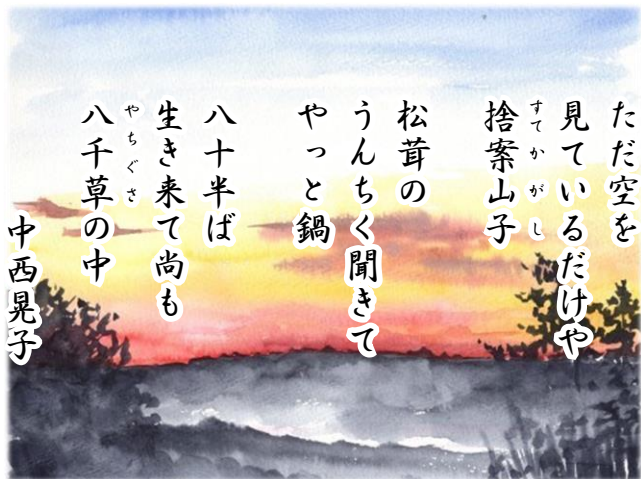 ただ空を
見ているだけや
捨案山子
すてかがし
松茸の
うんちく聞きて
やっと鍋
八十半ば
生き来て尚も
八千草の中
やちぐさ
中西晃子